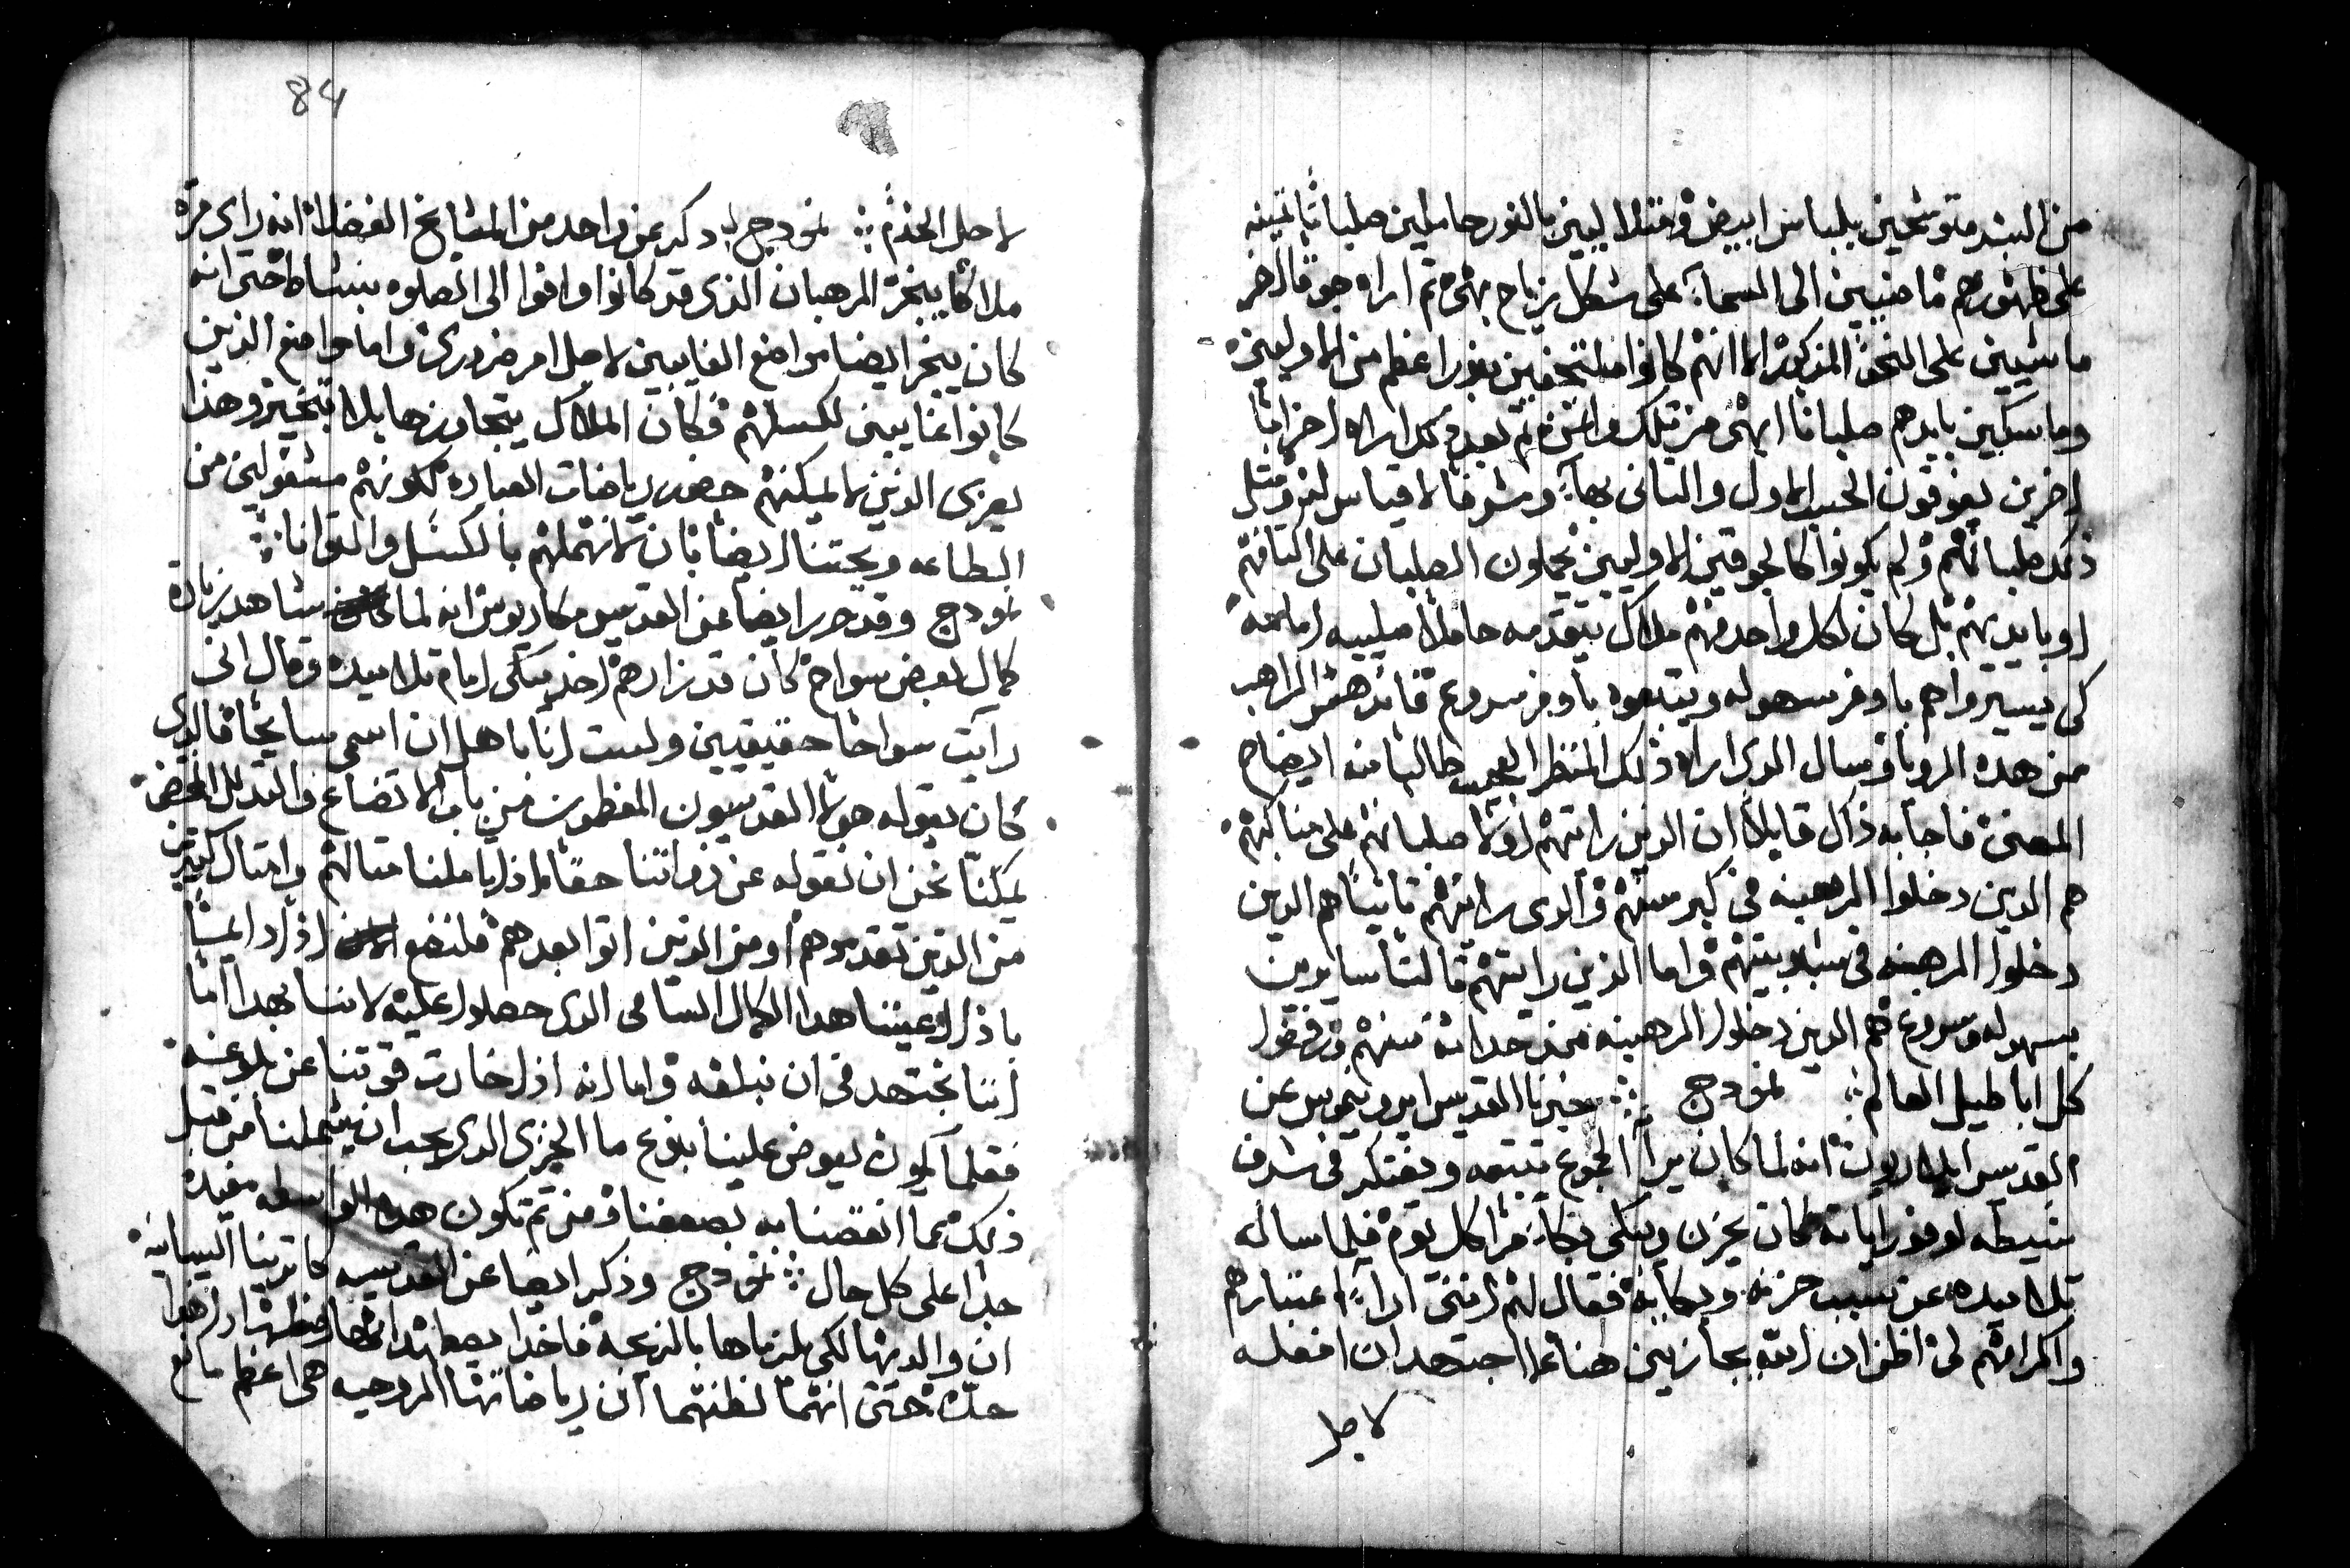 من البشر متوشحين بلباس ابيض ومتلاليين بالنور حاملين صلبانًا ثمينه
على ظهورهم ماضيين الى السمآء على شكل زياح بهى ثم اراه جوقًا اخر
ماشيين على النحو المذكور الا انهم كانوا ملتحفين بنور اعظم من الاوليين
وماسكين بايدهم صلبانًا ابهى من تلك واثمن ثم بعد ذلك اراه اخرانًا
اخرين يفوقون الحيد الاول والثانى بهآء وشرفًا لا قياس لهم ومثل
ذلك صلبانهم ولم يكونوا كالجوقتين الاوليين يحملون الصلبان على اكتافهم
او بايديهم بل كان لكل واحد منهم ملاك يتقدمه حاملا صليبه امامه
كى يسيروا هم باوفر سهوله ويتبعوه باوفر سروع فاندهش الراهب
من هده الرويا وسال الدى اراه ذلك المنظر العجيب طالبا منه ايضاح
المعنى فاجابه ذاك قايلا ان الدين رايتهم اولا صلبانهم على مناكبهم
هم الدين دخلوا الرهبنه فى كبر سنهم والدى رايتهم ثانيًا هم الدين
دخلوا الرهبنه فى شبوبيتهم واما الذين رايتهم ثالثًا سايرين
بسهوله وسروع هم الدين دخلوا الرهبنه منذ حداثة سنهم ورفضوا
كل اباطيل العالم ⁘ نمودج ⁘ خبرنا القديس ايرونيموس عن
القديس ايلاريون انه لما كان يرا الجموع تتبعه ويفتكر فى شرف
صيطه لوفور اياته كان يحزن ويبكى بكآء مرا كل يوم فلما ساله
تلاميده عن سبب حزنه وبكايه فقال لهم اننى ارا اعتباركم
واكرامكم لى اظن ان الله يجازينى هنا عما اجتهد ان افعله
لاجل
84
لاجل الخدم ⁘ نمودج دكر عن واحد من المشايخ الفضلا انه راى مره
ملاكا يبخر الرهبان الذى قد كانوا وافوا الى الصلوه بنشاط حتى انه
كان يبخر ايضا مواضع الغايبين لاجل امر ضرورى واما مواضع الذين
كانوا غايبين لكسلهم فكان الملاك يتجاوزها بلا تبخير وهذا
يعزى الدين لا يمكنهم حضور رياضات العباده لكونهم مشغولين من
الطاعه ويحتنا ايضا بان لا نهملهم بالكسل والتوانا ⁘
نمودج وقد حرر ايضا عن القديس مكاريوس انه لما شاهد زيادة
كمال بعض سواح كان قد زارهم اخد يبكى امام تلاميده وقال انى
رايت سواحًا حقيقيين ولست انا باهل ان اسمى سايحا فالدى
كان يقوله هولا القديسون المغطون من باب الاتضاع والتدلل المحض
يمكننا نحن ان نقوله عن ذواتنا حقًا اذا تاملنا مثالهم وامثال كثيرين
من الذين تقدموهم او من الدين اتوا بعدهم فلنضع اذًا دايمًا
باذا اعيننا هدا الكمال السامى الدى حصلوا عليه لاننا بهدا اما
اننا نجتهد فى ان نبلغه واما انه اذا خارت قوتنا عن بلوغه
فقلما يكون يعوض علينا بلوغ ما الجزى الدى يجب ان يشملنا من قبل
ذلك عما انقصنا به بضعفنا ومن ثم تكون هده الواسطه مفيده
جدا على كل حال ⁘ نمودج وذكر ايضا عن القديسه كاترينا السيانيه
ان والديها لكى يلزماها بالزيجه فاخدا يضطهدانها اضطهادا هذا
حده حتى انهما لظنهما ان رياضاتها الروحيه هى اعظم مانع